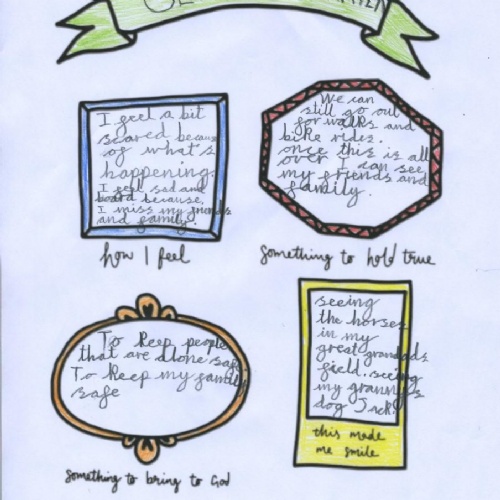 I feel a bit
scared because
of what's
happening.
I feel sad and
board because,
I miss my friends
and family.
how I feel
We can
still go out
for walks and
bike rides.
once this is all
over I can see
my friends and
family.
something to hold true
To keep people
that are alone safe
To keep my family
safe
something to bring to God
seeing
the horses
in my
great grandads
field. seeing
my granny's
dog Jack.
this made
me smile